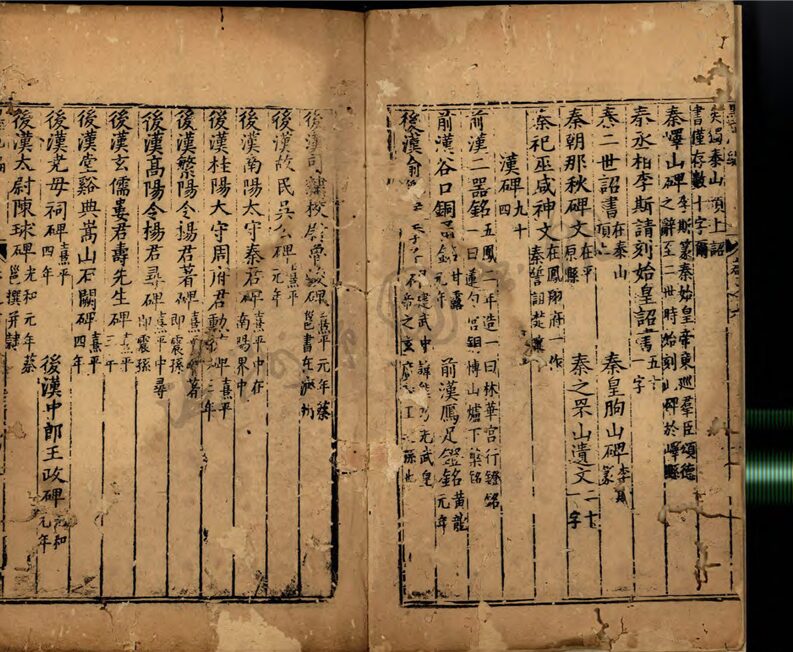 書僅存數十字爾
秦嶧山碑 李斯篆秦始皇帝東巡羣臣頌德之辭至二世時始刻山碑於嶧縣
秦丞相李斯請刻始皇詔書 五十一字
秦二世詔書 在泰山頂上 秦皇朐山碑 李斯篆
秦朝那秋碑文 在平原縣 秦之罘山遺文 二十一字
秦祀巫咸神文 在鳳翔府一作秦誓詛楚
漢碑 九十四
前漢二器銘 五鳳二年造一曰林華宮行鐙銘一曰蓮勺宮銅博山爐下槃銘
前漢谷口銅甬銘 甘露元年 前漢鴈足鐙銘 黃龍元年
後漢 建武中 光武皇
後漢司隸校尉魯峻碑 熹平元年蔡邕書在濟州
後漢故民吳公碑 熹平元年
後漢南陽太守秦君碑 熹平中在南陽界中
後漢桂陽太守周府君勳碑 熹平三年
後漢繁陽令楊君著碑 熹平著即震孫
後漢高陽令楊君碑 熹平中尋即震孫
後漢玄儒婁君壽先生碑 三年
後漢堂谿典嵩山石闕碑 熹平四年
後漢堯母祠碑 熹平四年 後漢中郎王政碑 光和元年
後漢太尉陳球碑 光和元年蔡邕撰并隸